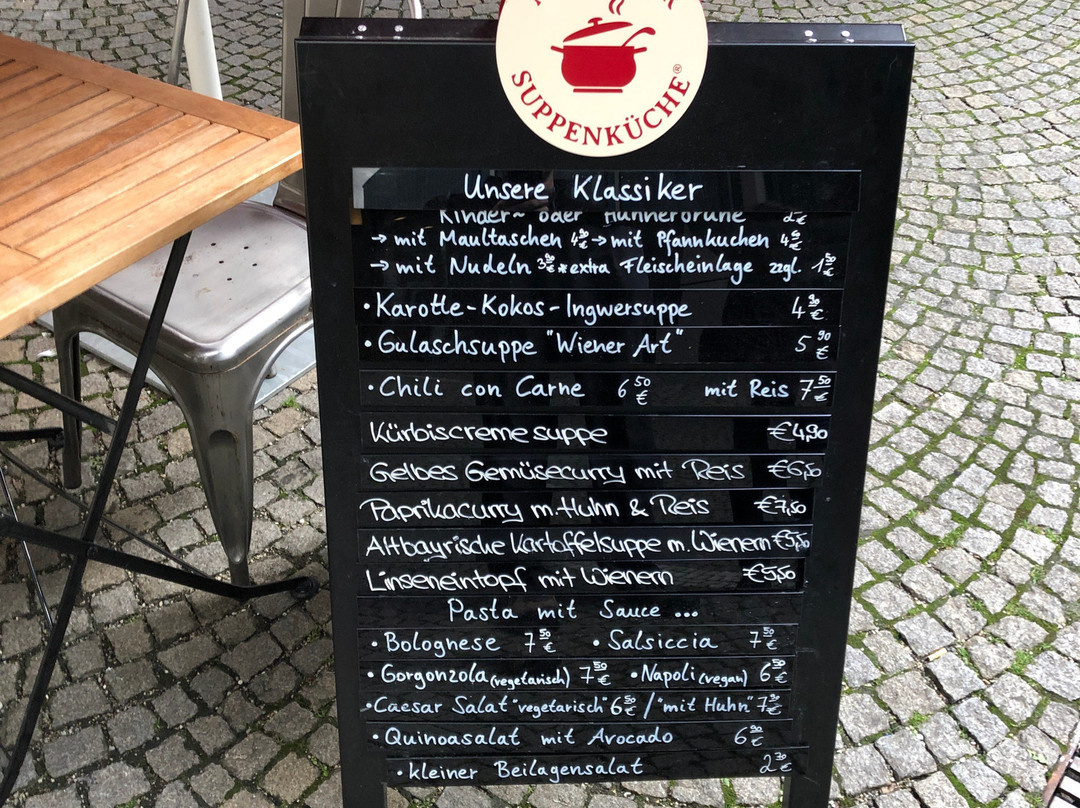 SUPPENKÜCHE®
Unsere Klassiker
Kinder- oder Hühnerbrühe
→ mit Maultaschen → mit Pfannkuchen
→ mit Nudeln * extra Fleischeinlage zzgl. 1 50 €
• Karotte-Kokos-Ingwersuppe 4 90 €
• Gulaschsuppe "Wiener Art" 5 90 €
• Chili con Carne 6 50 € mit Reis 7 50 €
Kürbiscremesuppe €4,90
Gelbes Gemüsecurry mit Reis €6,50
Paprikacurry m. Huhn & Reis €7,50
Altbayrische Kartoffelsuppe m. Wienern €5,50
Linseneintopf mit Wienern €5,50
Pasta mit Sauce ...
• Bolognese 7 50 € • Salsiccia 7 50 €
• Gorgonzola (vegetarisch) 7 50 € • Napoli (vegan) 6 50 €
• Caesar Salat "vegetarisch" 6 50 € / "mit Huhn" 7 90 €
• Quinoasalat mit Avocado 6 90 €
• kleiner Beilagensalat 2 70 €